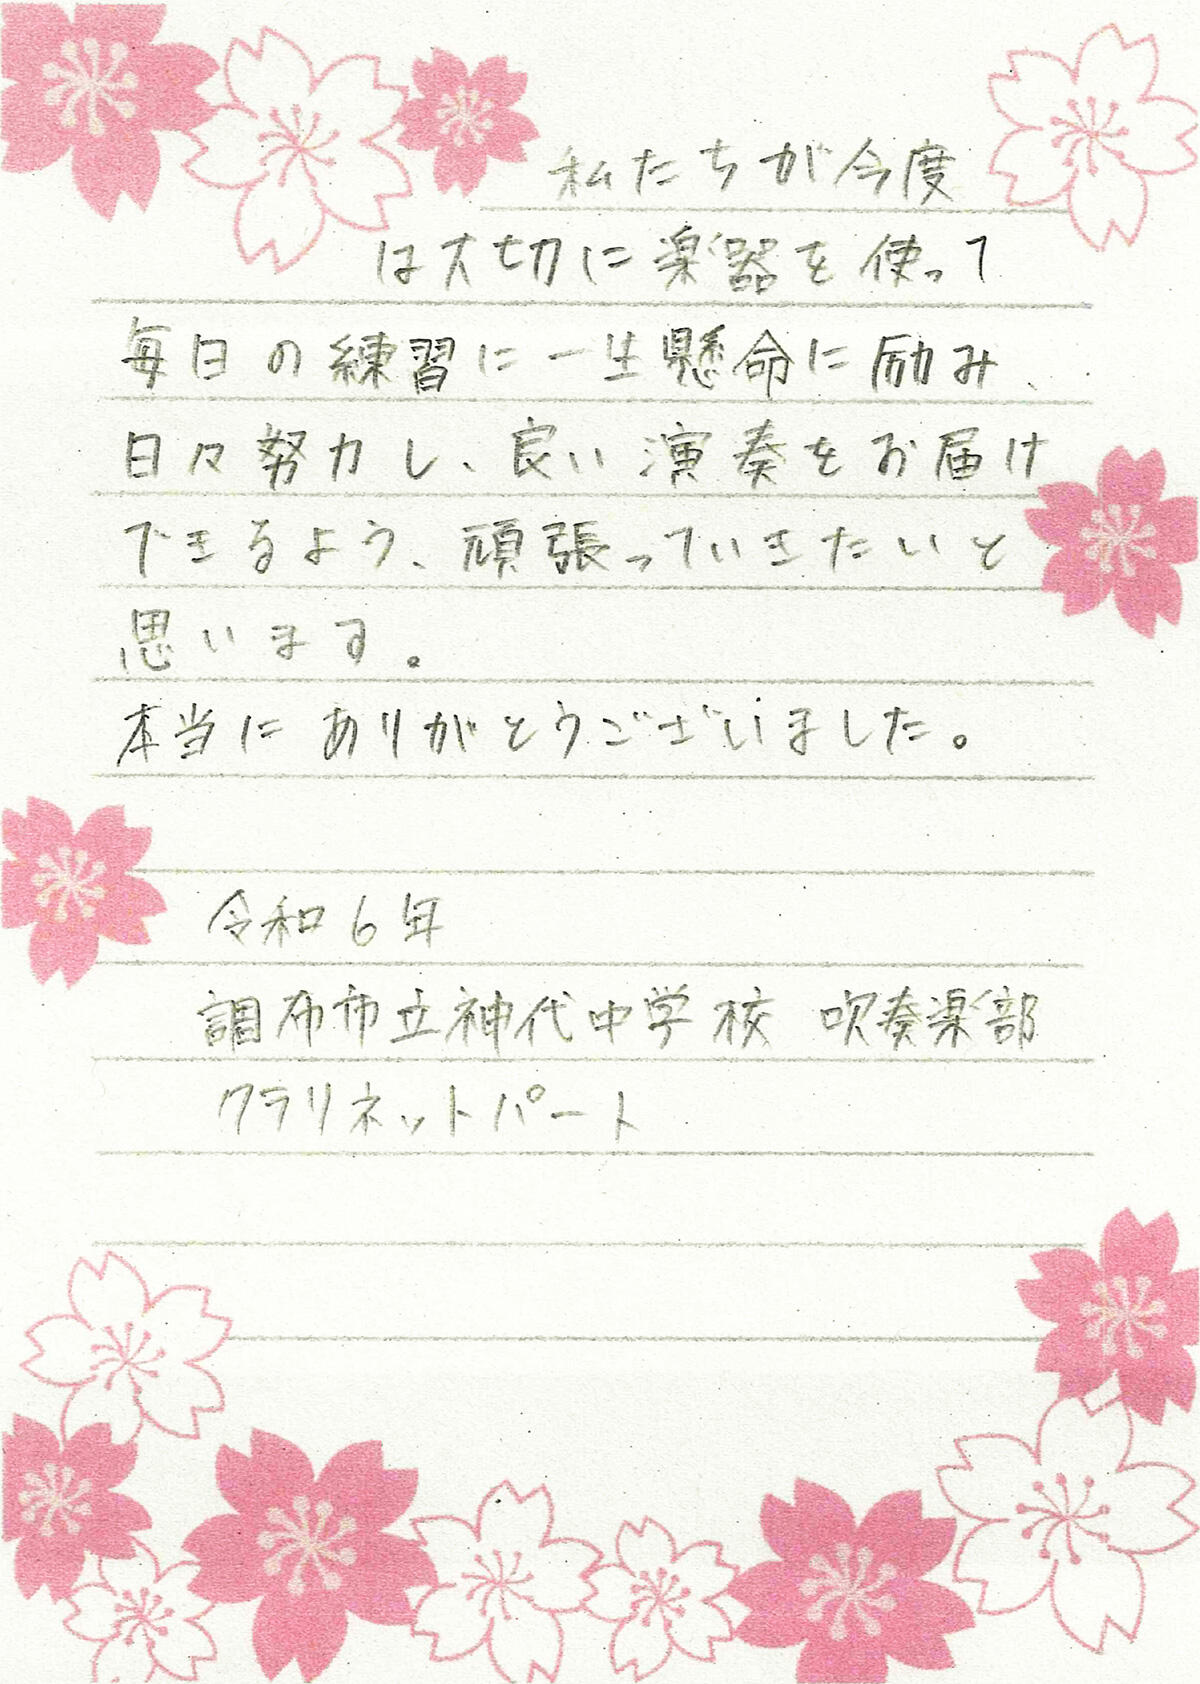 私たちが今度
は大切に楽器を使って
毎日の練習に一生懸命に励み、
日々努力し、良い演奏をお届け
できるよう、頑張っていきたいと
思います。
本当にありがとうございました。
令和6年
調布市立神代中学校 吹奏楽部
クラリネットパート